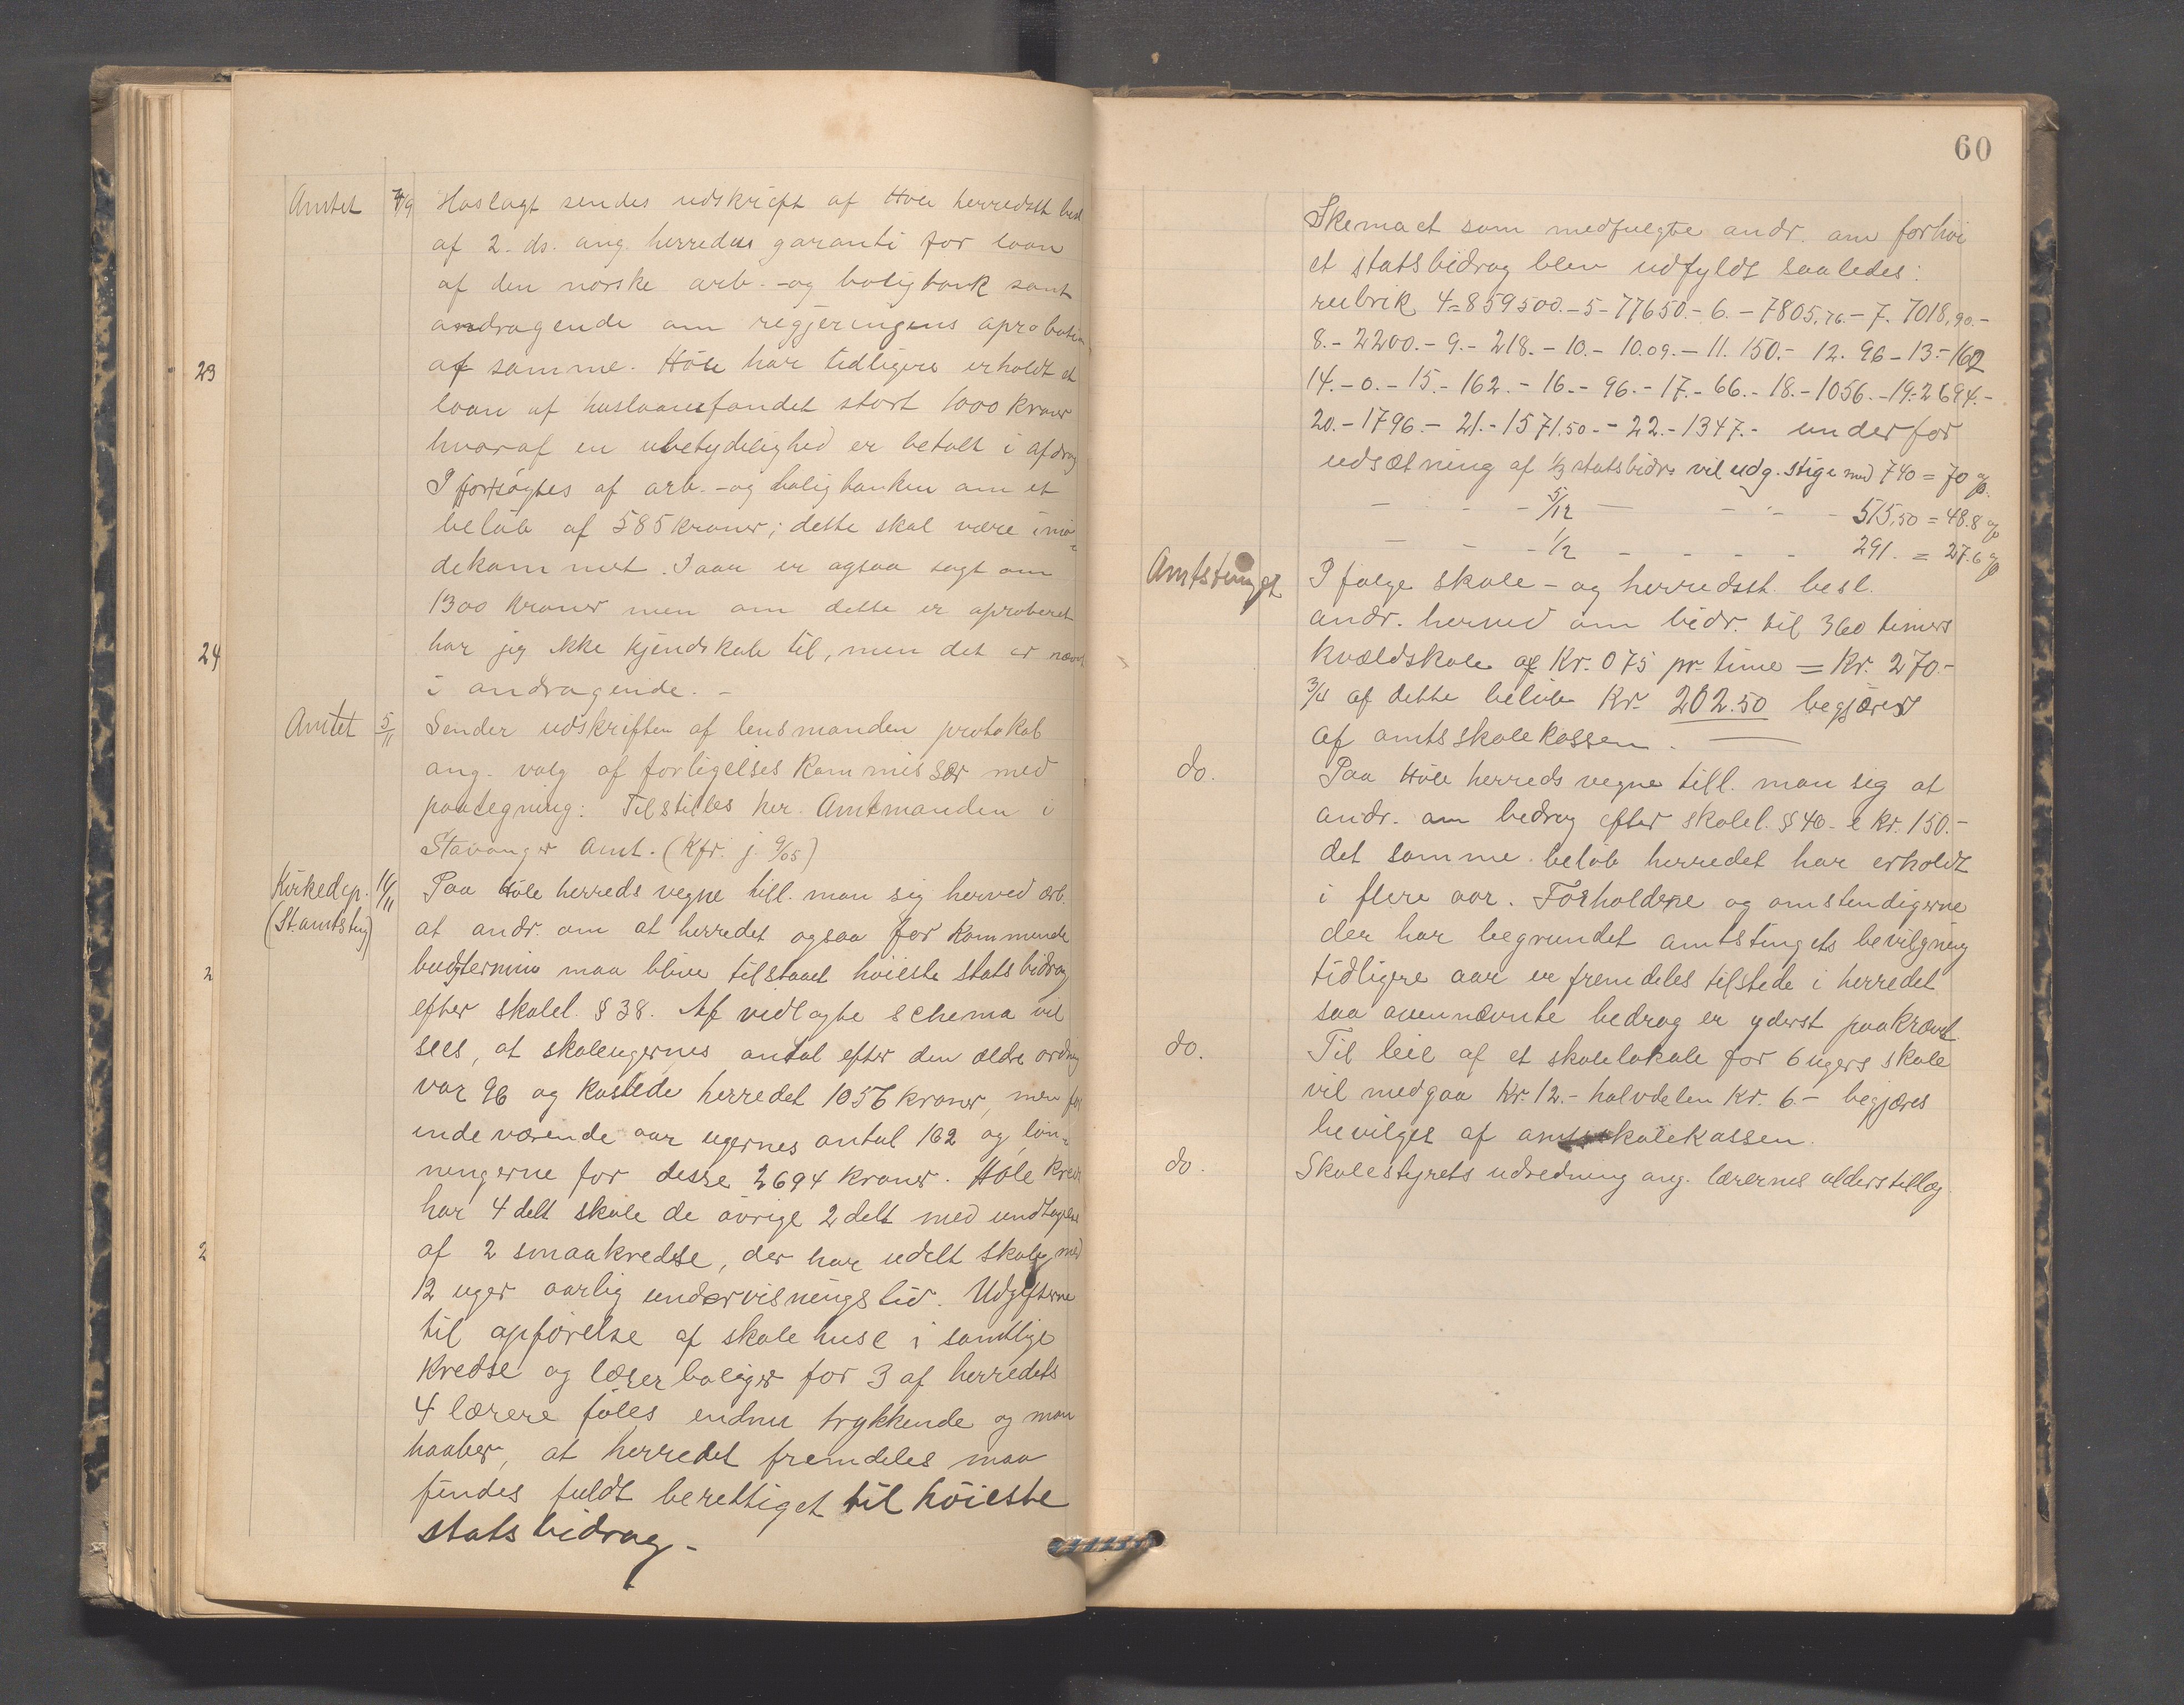 Amtet 4/9 Hoslagt sendes udskrift af Höle herredsst. besl.
af 2. ds. ang. herredets garanti for laan
af den norske arb.- og boligbank samt
andragende om regjeringens aprobation
23
af samme. Höle har tidligere erholdt et
laan af huslaanefondet stort 1000 kroner
hvoraf en ubetydelighed er betalt i afdrag
I fjor søgtes af arb.- og boligbanken om et
beløb af 585 kroner; dette skal være imö-
dekommet. Iaar er ogsaa søgt om
1300 kroner men om dette er aproberet
24
har jeg ikke kjendskab til, men det er nævnt
i andragende. -
Amtet 5/11 Sender udskriften af lensmanden protokol
ang. valg af forligelses kommissær med
paategning: Tilstilles hr. Amtmanden i
Stavanger Amt. (Kfr. j. 9/05)
Kirkedep. 14/11 Paa Höle herreds vegne till. man sig herved ærb.
(St. amtsting) at andr. om at herredet ogsaa for kommende
2
budgtermin maa blive tilstaaet höieste statsbidrag
efter skolel. § 38. Af vedlagte schema vil
sees, at skoleugernes antal efter den ældre ordng
var 96 og kostede herredet 1056 kroner, men for
indeværende aar ugernes antal 162 og løn-
ningerne for disse 2694 kroner. Höle kreds
har 4 delt skole de övrige 2 delt med undtagelse
2
af 2 smaakredse, der har udelt skole med
12 uger aarlig undervisningstid. Udgifterne
til opförelse af skolehuse i samtlige
kredse og lærerboliger for 3 af herredets
4 lærere föles endnu trykkende og man
haaber, at herredet fremdeles maa
findes fuldt berettiget til höieste
statsbidrag.-
60
Skemaet som medfulgte andr. om forhöi
et statsbidrag blev udfyldt saaledes:
rubrik 4=859500.-5-77650.-6.-7805,76.-7. 7018,90.-
8.-2200.-9.-218.-10.-10.09.-11. 150.- 12. 96-13.-162
14.-0.-15.-162.-16.-96.-17.-66.-18.-1056.-19.-2694.-
20.-1796.-21.-1571,50.-22.-1347.- under for
udsætning af 1/3 statsbidr. vil udg. stige med 740 = 70 %.
- - - 5/12 - - - - 515,50 = 48.8 %
- - - 1/2 - - - - 291. = 27.6 %
Amtstinget I følge skole- og herredsst. besl.
andr. herved om bidr. til 360 timers
kvældskole af Kr. 075 pr. time = Kr. 270.-
3/4 af dette beløb Kr. 202.50 begjæres
af amtsskolekassen.
do. Paa Höle herreds vegne till. man sig at
andr. om bedrag efter skolel. § 40-e kr. 150.-
det samme beløb herredet har erholdt
i flere aar. Forholdene og omstendigerne
der har begrundet amtstingets bevilgning
tidligere aar er fremdeles tilstede i herredet
saa ovennævnte bedrag er yderst paakrævet.
do. Til leie af et skolelokale for 6 ugers skole
vil medgaa Kr. 12.- halvdelen Kr. 6.- begjæres
bevilget af amtsskolekassen.
do. Skolestyrets udredning ang. lærernes alderstillæg